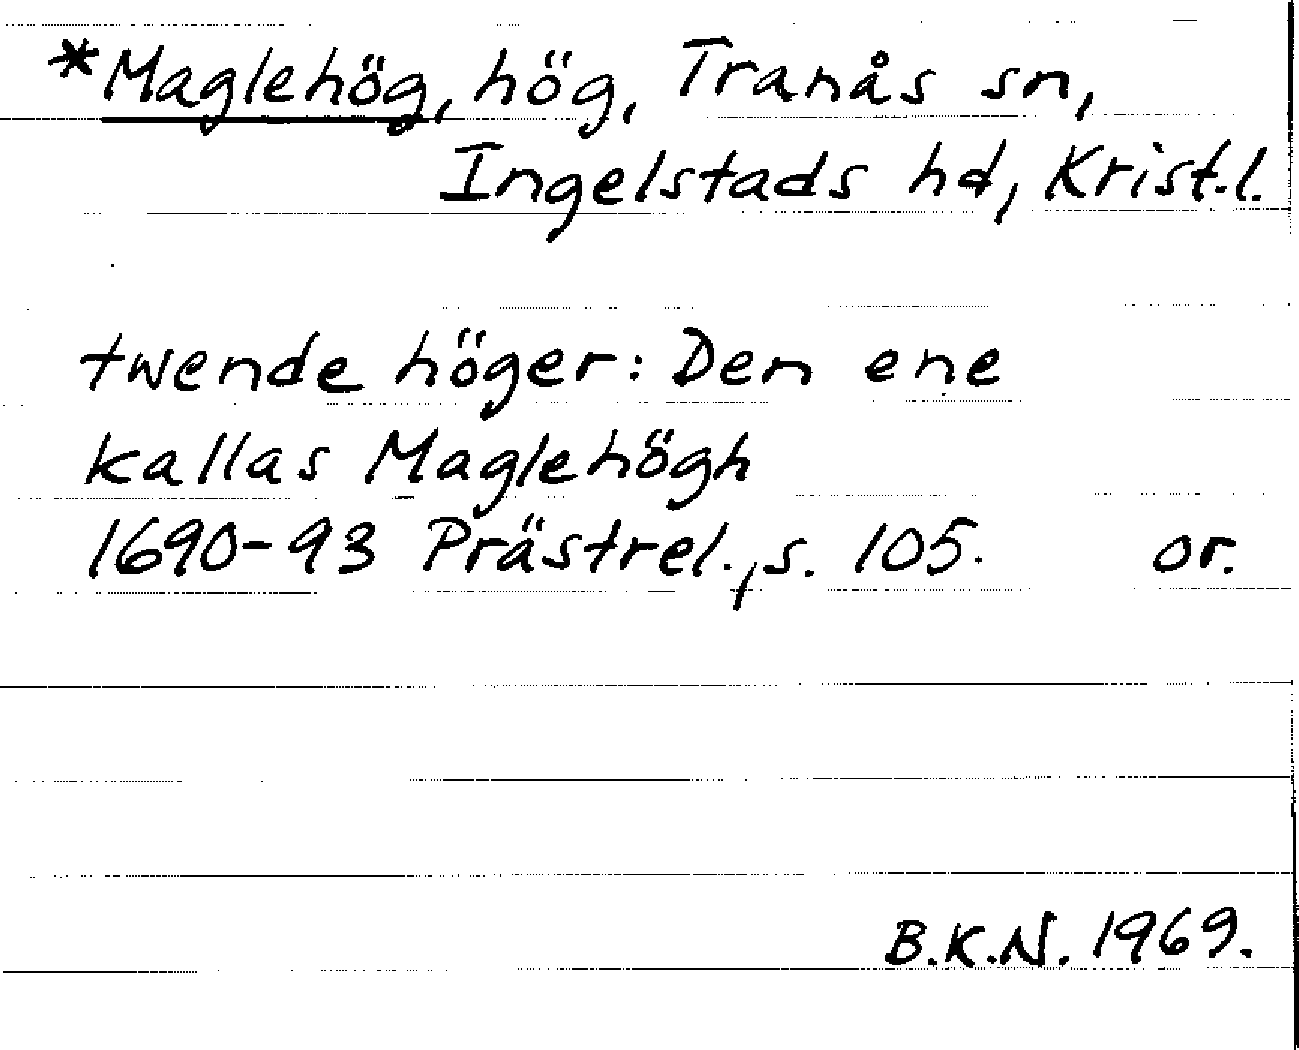 *Maglehög, hög, Tranås sn,
Ingelstads hd, Krist.l.
twende höger: Den ene
kallas Maglehögh
1690-93 Prästrel., s. 105. or.
B.K.N. 1969.